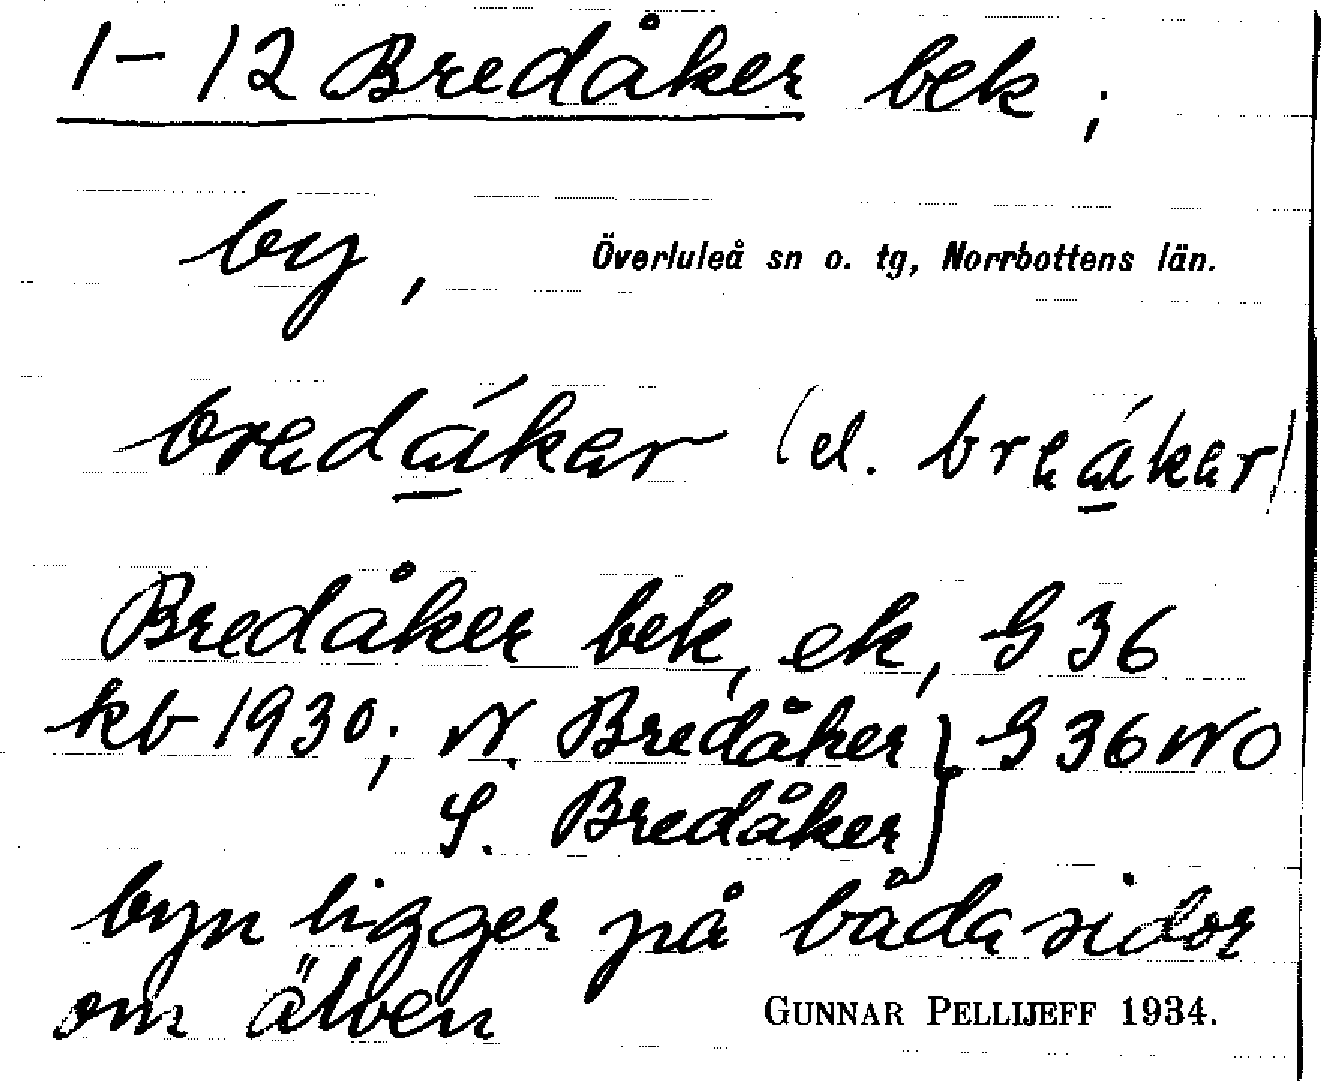 1-12 Bredåker bek;
by, Överluleå sn o. tg, Norrbottens län.
(el.
Bredåker bek, ek, G 36
kb 1930; N. Bredåker } G 36 NO
S. Bredåker
byn ligger på båda sidor
om älven GUNNAR PELLIJEFF 1934.